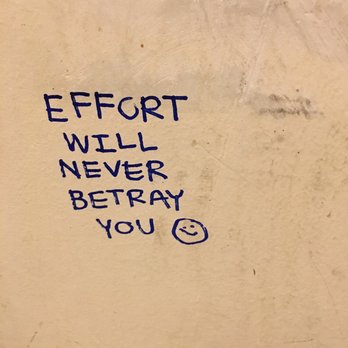 EFFORT
WILL
NEVER
BETRAY
YOU